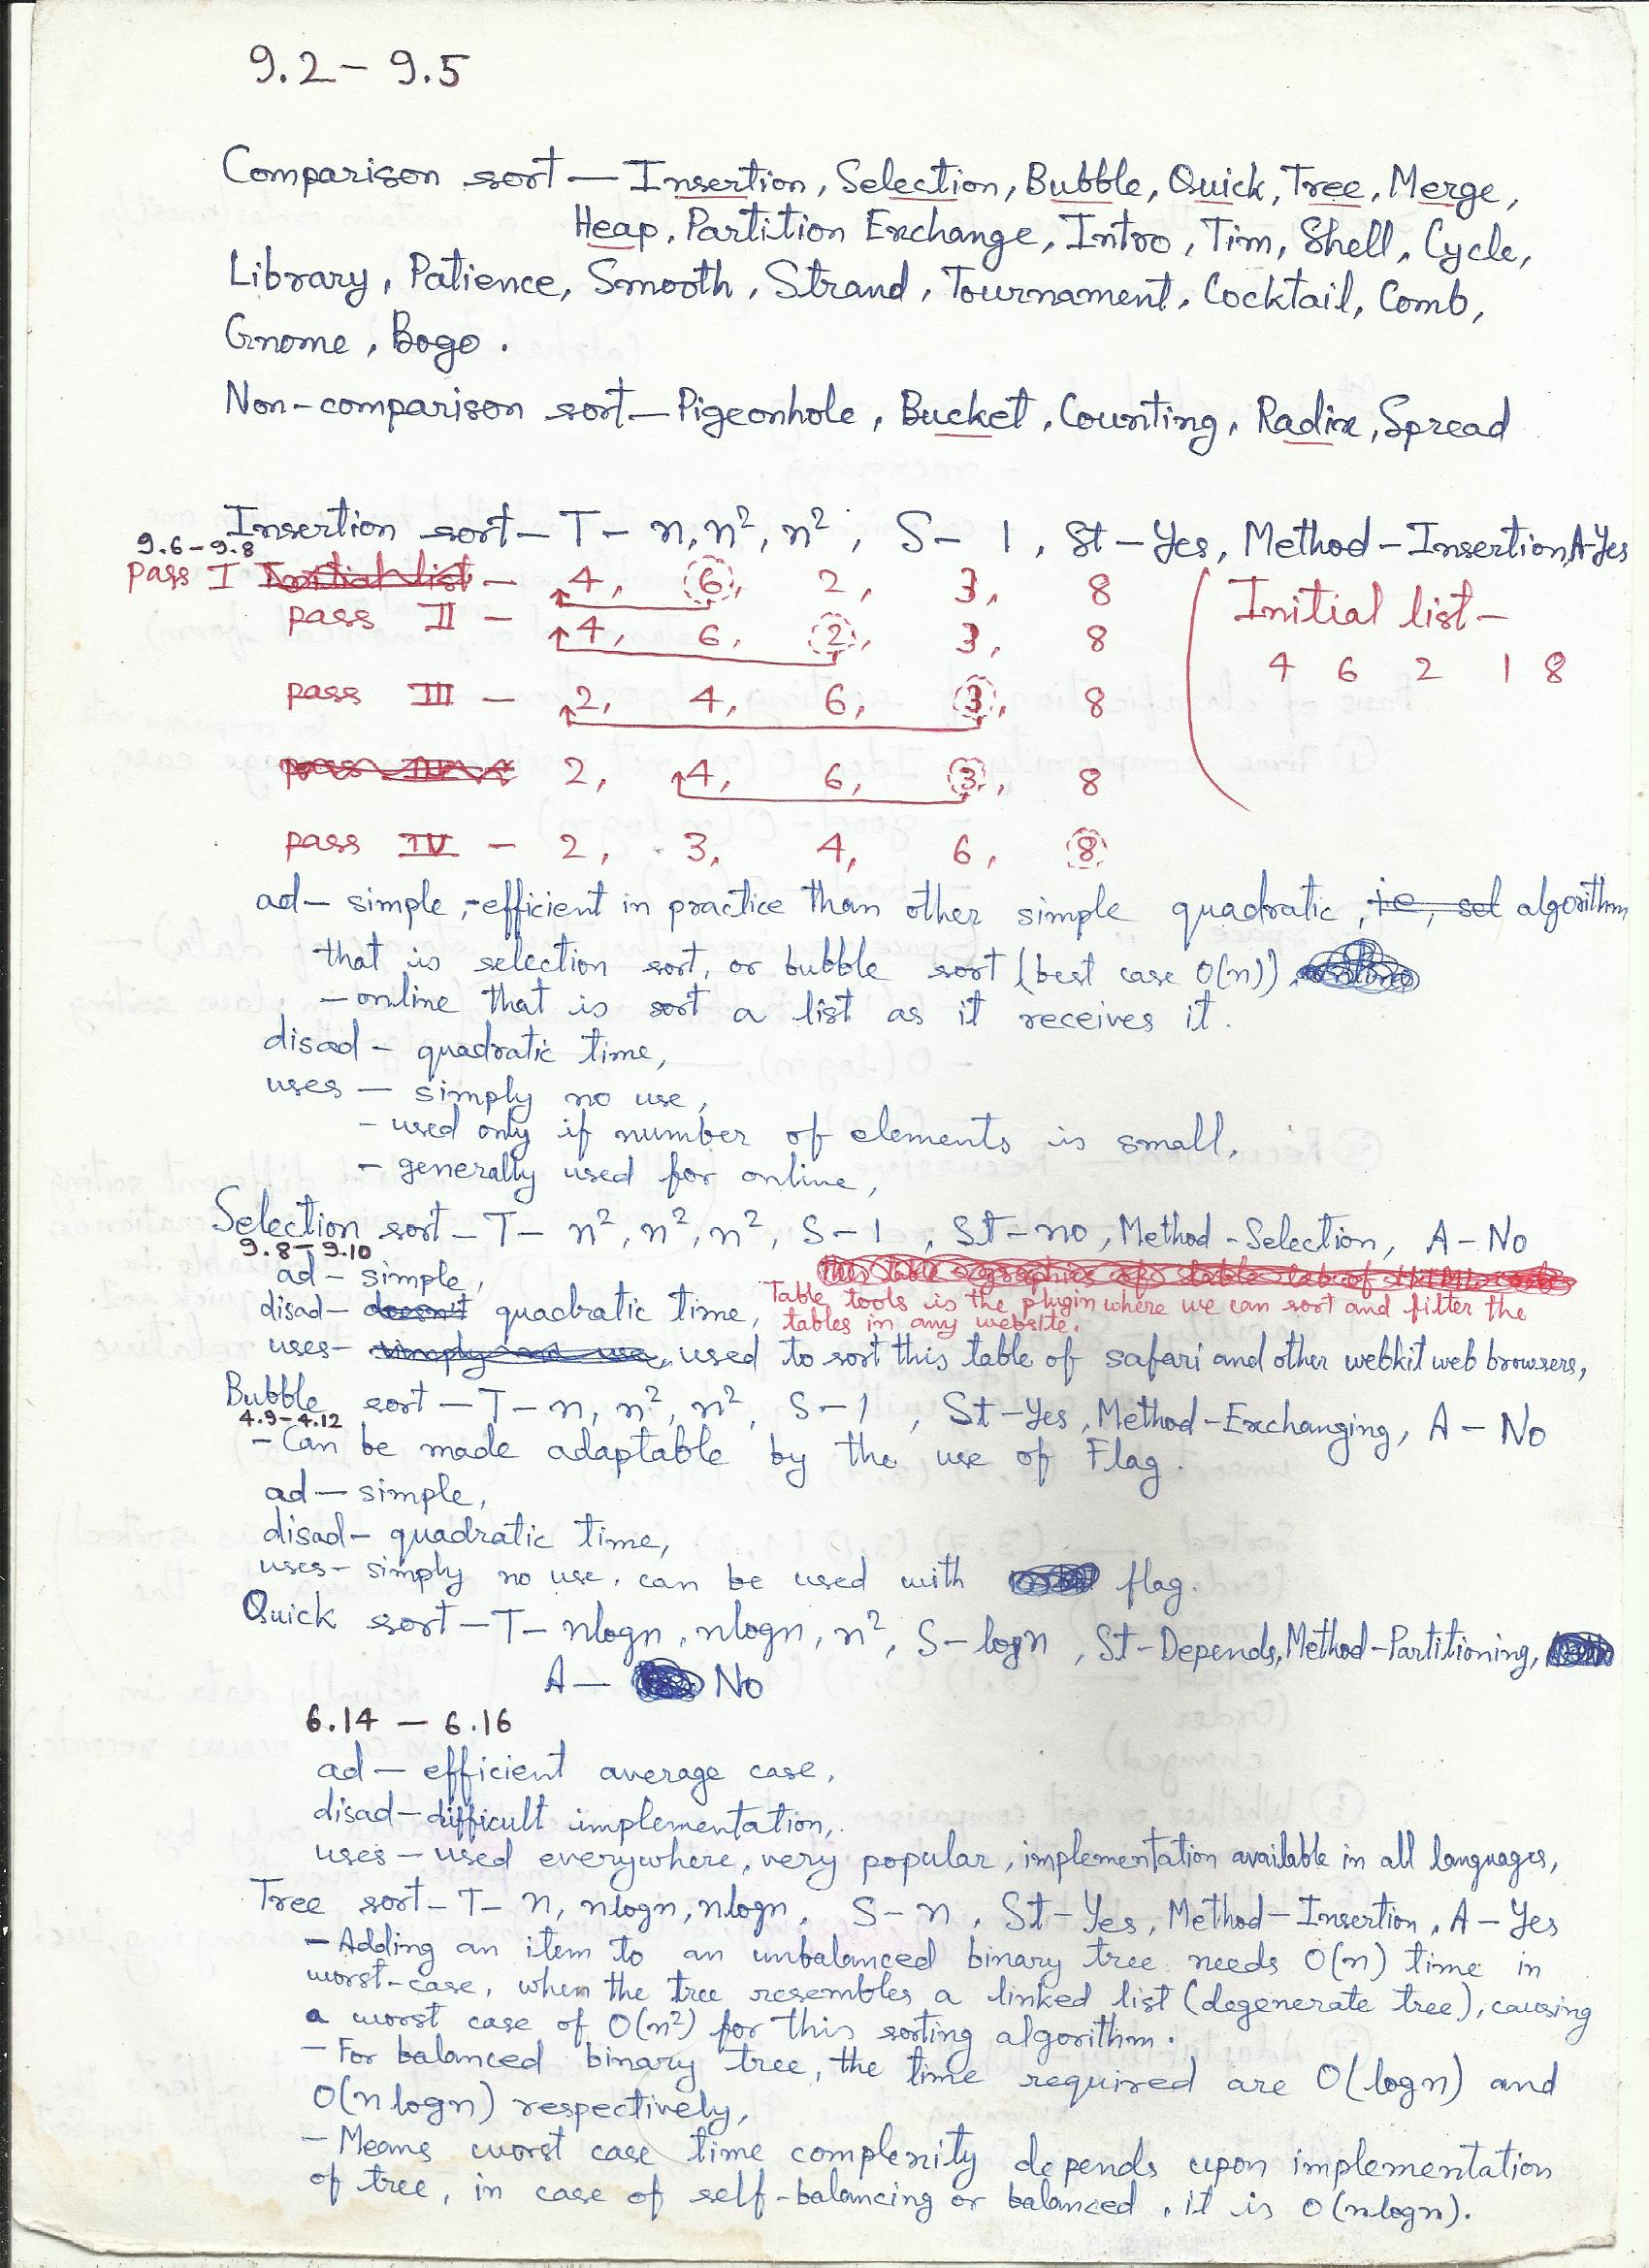 9.2 - 9.5
Comparison sort — Insertion, Selection, Bubble, Quick, Tree, Merge,
Heap, Partition Exchange, Intro, Tim, Shell, Cycle,
Library, Patience, Smooth, Strand, Tournament, Cocktail, Comb,
Gnome, Bogo.
Non-comparison sort — Pigeonhole, Bucket, Counting, Radix, Spread
Insertion sort — T - n, n², n², S - 1, St - Yes, Method - Insertion, A-Yes
9.6-9.8
Pass I Initial list - 4, 6, 2, 3, 8
pass II - 4, 6, 2, 3, 8
pass III - 2, 4, 6, 3, 8
2, 4, 6, 3, 8
pass IV - 2, 3, 4, 6, 8
Initial list -
4 6 2 1 8
ad - simple, - efficient in practice than other simple quadratic, i.e, sel algorithm
that is selection sort, or bubble sort (best case O(n)),
- online that is sort a list as it receives it.
disad - quadratic time,
uses - simply no use,
- used only if number of elements is small,
- generally used for online,
Selection sort - T - n², n², n², S - 1, St - no, Method - Selection, A - No
9.8 - 9.10
ad - simple,
disad - doesn't quadratic time,
Table tools is the plugin where we can sort and filter the
tables in any website.
uses - simply no use, used to sort this table of safari and other webkit web browsers,
Bubble sort - T - n, n², n², S - 1, St - Yes, Method - Exchanging, A - No
4.9-4.12
- Can be made adaptable by the use of Flag.
ad - simple,
disad - quadratic time,
uses - simply no use, can be used with flag.
Quick sort - T - nlogn, nlogn, n², S - logn, St - Depends, Method - Partitioning,
A - No
6.14 - 6.16
ad - efficient average case,
disad - difficult implementation,
uses - used everywhere, very popular, implementation available in all languages,
Tree sort - T - n, nlogn, nlogn, S - n, St - Yes, Method - Insertion, A - Yes
- Adding an item to an unbalanced binary tree needs O(n) time in
worst-case, when the tree resembles a linked list (degenerate tree), causing
a worst case of O(n²) for this sorting algorithm.
- For balanced binary tree, the time required are O(logn) and
O(n logn) respectively,
- Means worst case time complexity depends upon implementation
of tree, in case of self-balancing or balanced, it is O(nlogn).